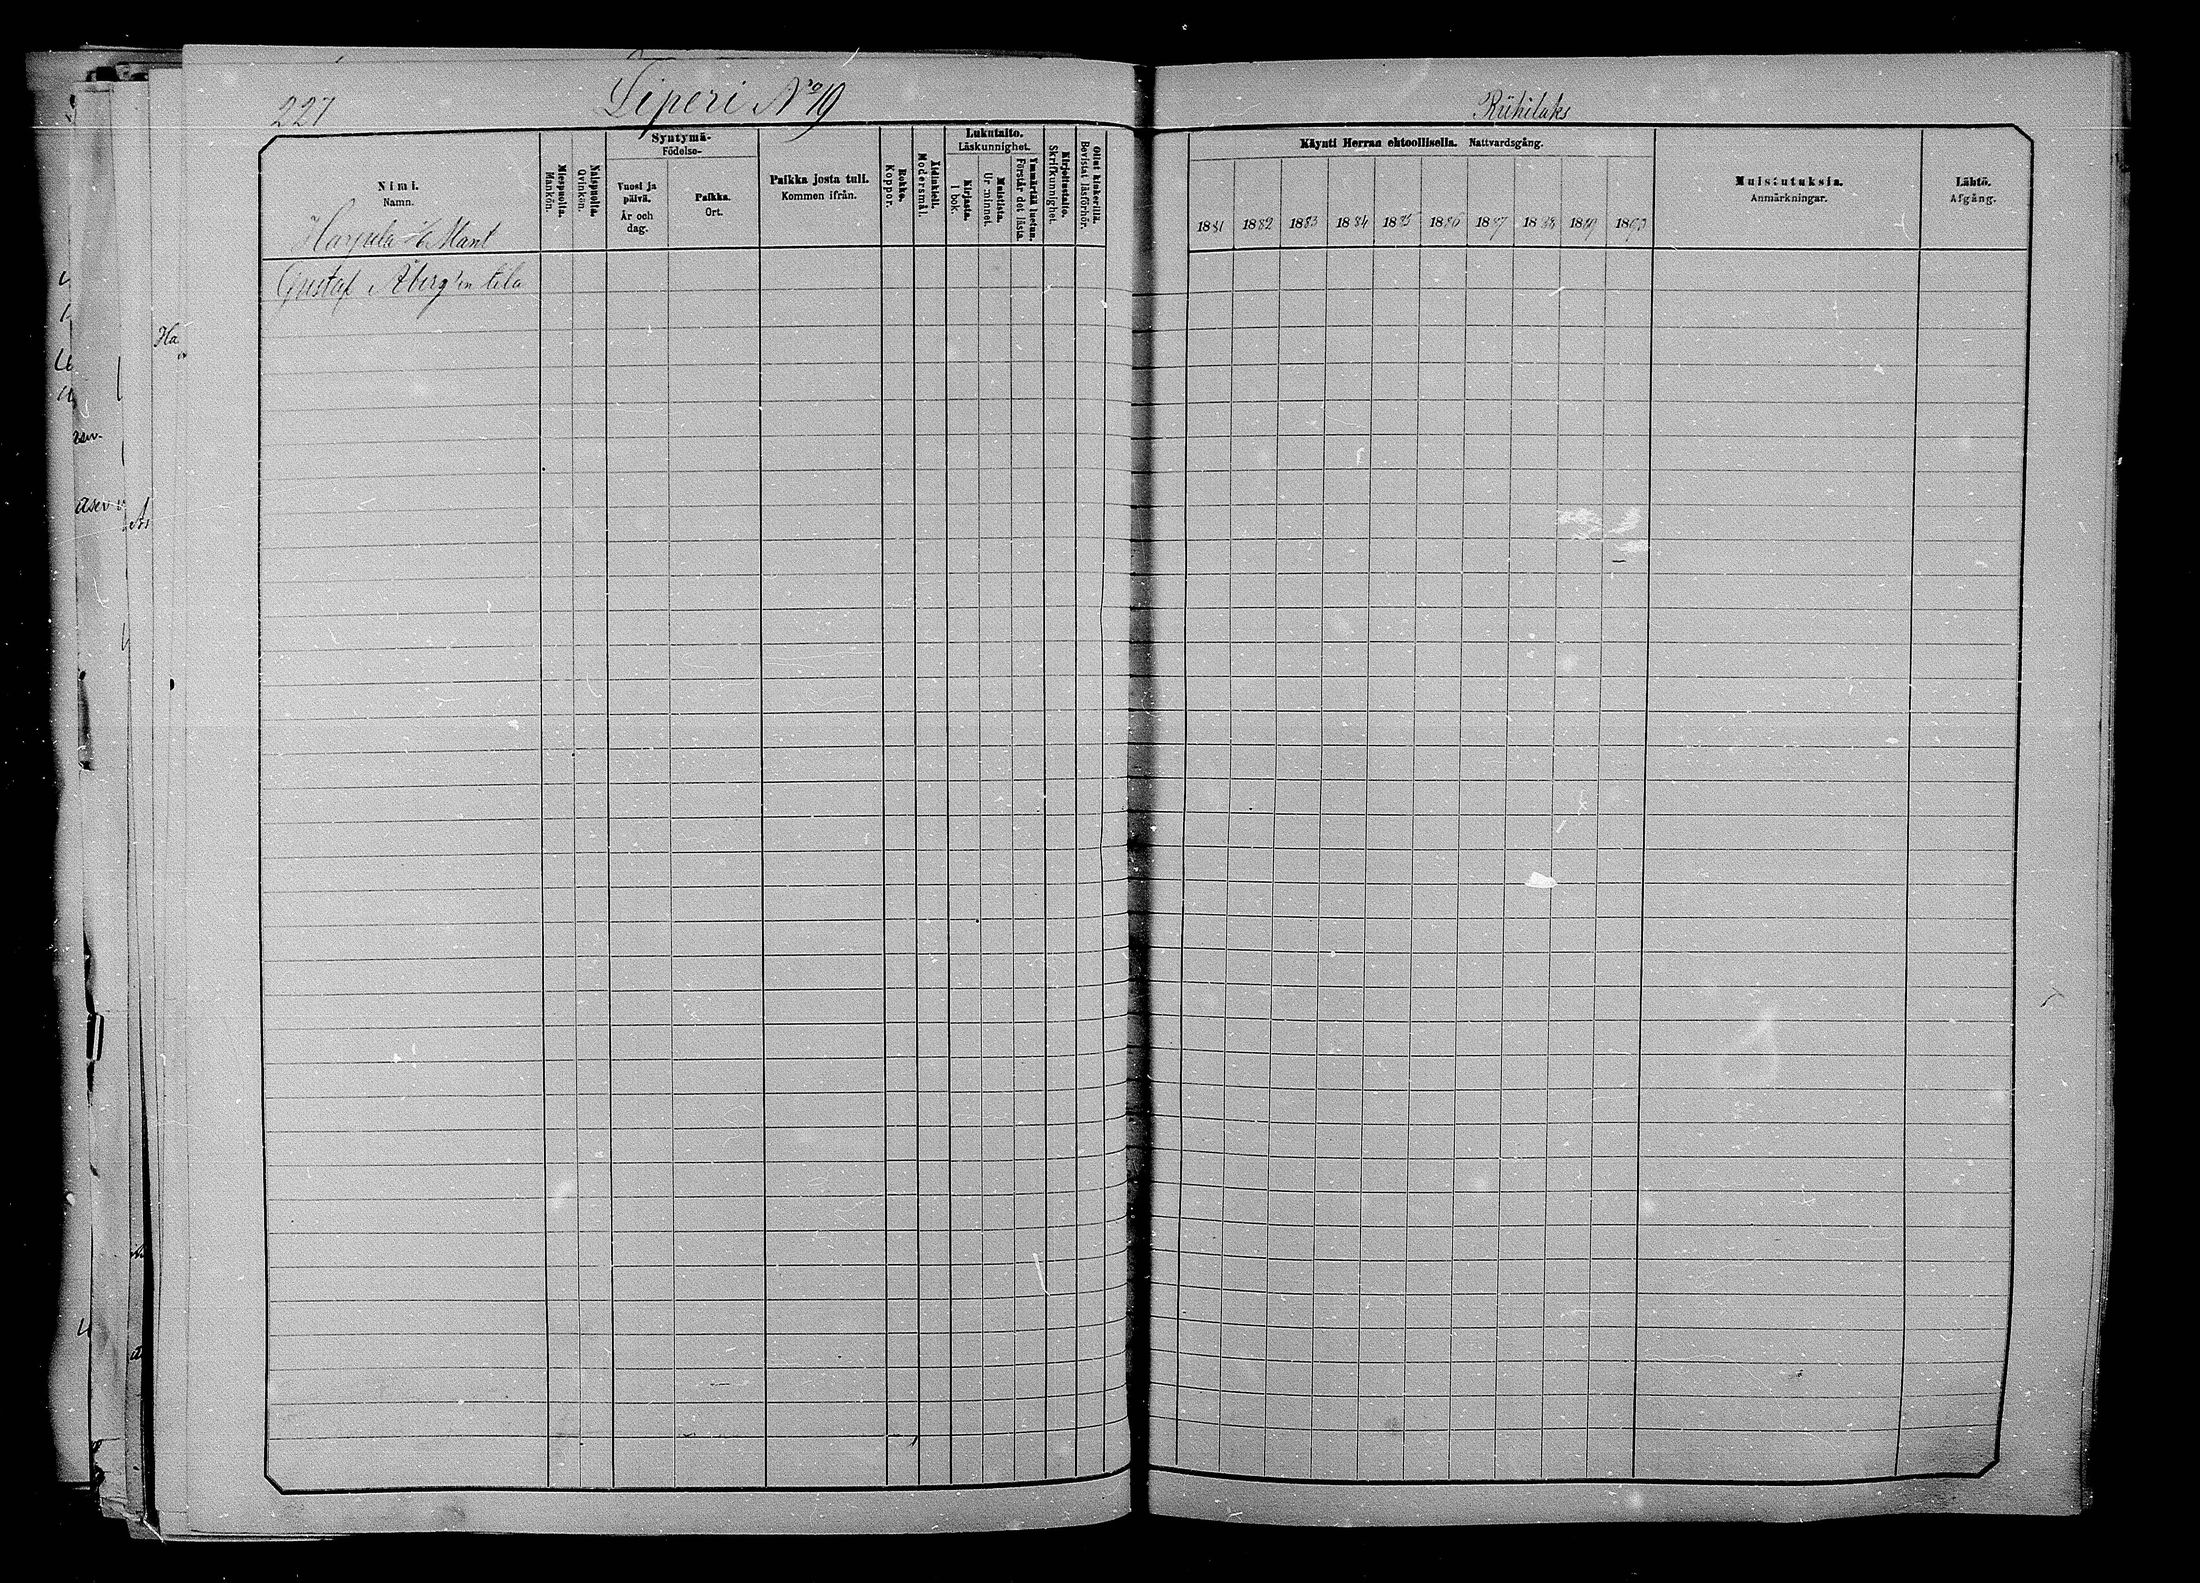 227
Liperi No 19
Riihilaks
Nimi.
Namn.
Miespuolia.
Mankön.
Naispuolia.
Qvinkön.
Syntymä-
Födelse-
Vuosi ja
päivä.
År och
dag.
Paikka.
Ort.
Paikka josta tuli.
Kommen ifrån.
Rokko.
Koppor.
Äidinkieli.
Modersmål.
Lukutaito.
Läskunnighet.
Kirjasta.
I bok.
Muistista.
Ur minnet.
Ymmärtää luetun.
Förstår det lästa.
Kirjoitustaito.
Skrifkunnighet.
Ollut kinkerillä.
Bevistat läsförhör.
Käynti Herran ehtoollisella. Nattvardsgång.
1881 1882 1883 1884 1885 1886 1887 1888 1889 1890
Muistutuksia.
Anmärkningar.
Lähtö.
Afgång.
Mant
Gustaf Åberg'in tila